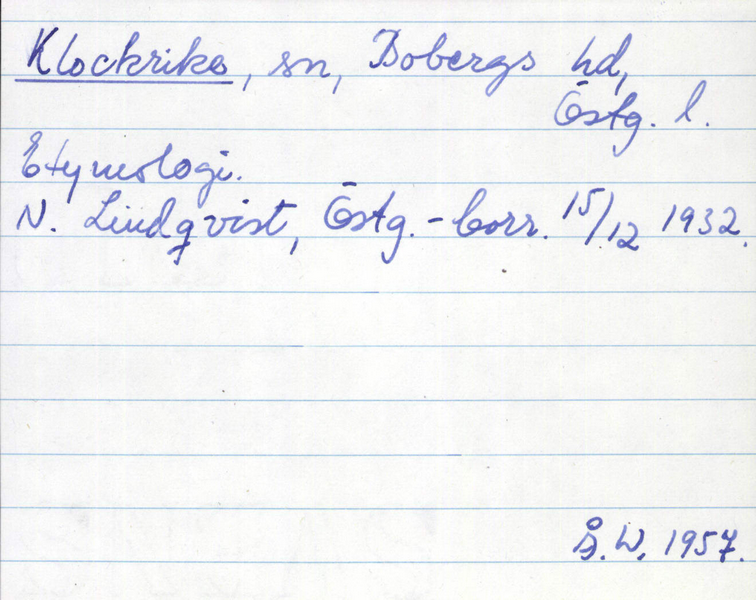 Klockrike, sn, Bobergs hd,
Östg. l.
Etymologi.
N. Lindqvist, Östg.-Corr. 15/12 1932.
Å.W. 1957.